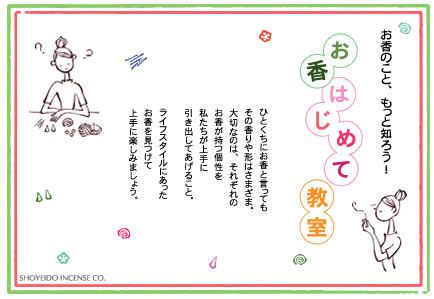 お香のこと、もっと知ろう！
お香はじめて
教室
ひとくちにお香と言っても
その香りや形はさまざま。
大切なのは、それぞれの
お香が持つ個性を
私たちが上手に
引き出してあげること。
ライフスタイルにあった
お香を見つけて
上手に楽しみましょう。
SHOYEIDO INCENSE CO.